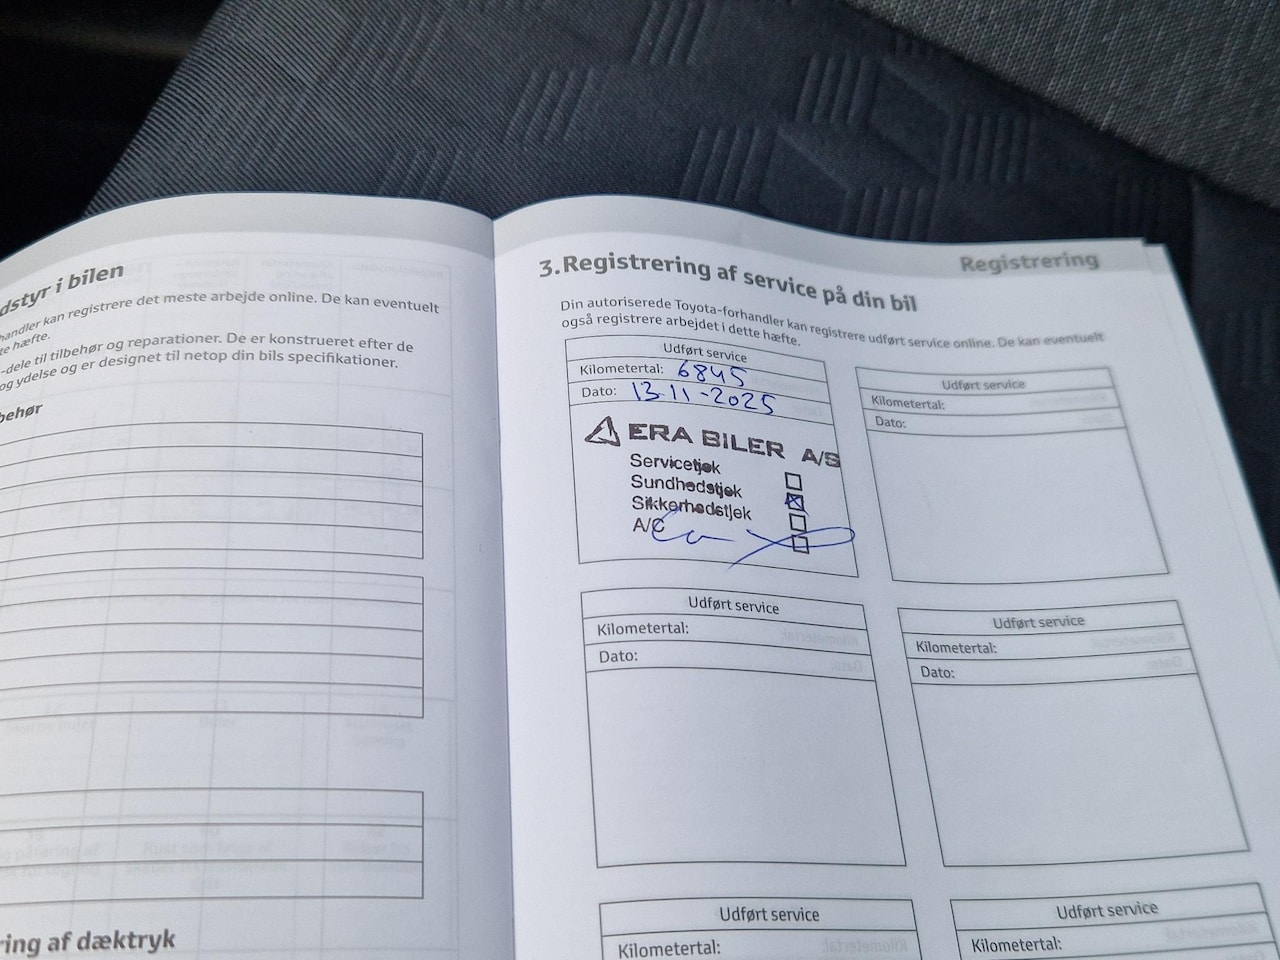 dstyr i bilen
handler kan registrere det meste arbejde online. De kan eventuelt
te hæfte.
-dele til tilbehør og reparationer. De er konstrueret efter de
og ydelse og er designet til netop din bils specifikationer.
behør
ring af dæktryk
Registrering
3. Registrering af service på din bil
Din autoriserede Toyota-forhandler kan registrere udført service online. De kan eventuelt
også registrere arbejdet i dette hæfte.
Udført service
Kilometertal: 6845
Dato: 13-11-2025
ERA BILER A/S
Servicetjek
Sundhedstjek
Sikkerhedstjek
A/C
Udført service
Kilometertal:
Dato:
Udført service
Kilometertal:
Dato:
Udført service
Kilometertal:
Dato:
Udført service
Kilometertal:
Udført service
Kilometertal: